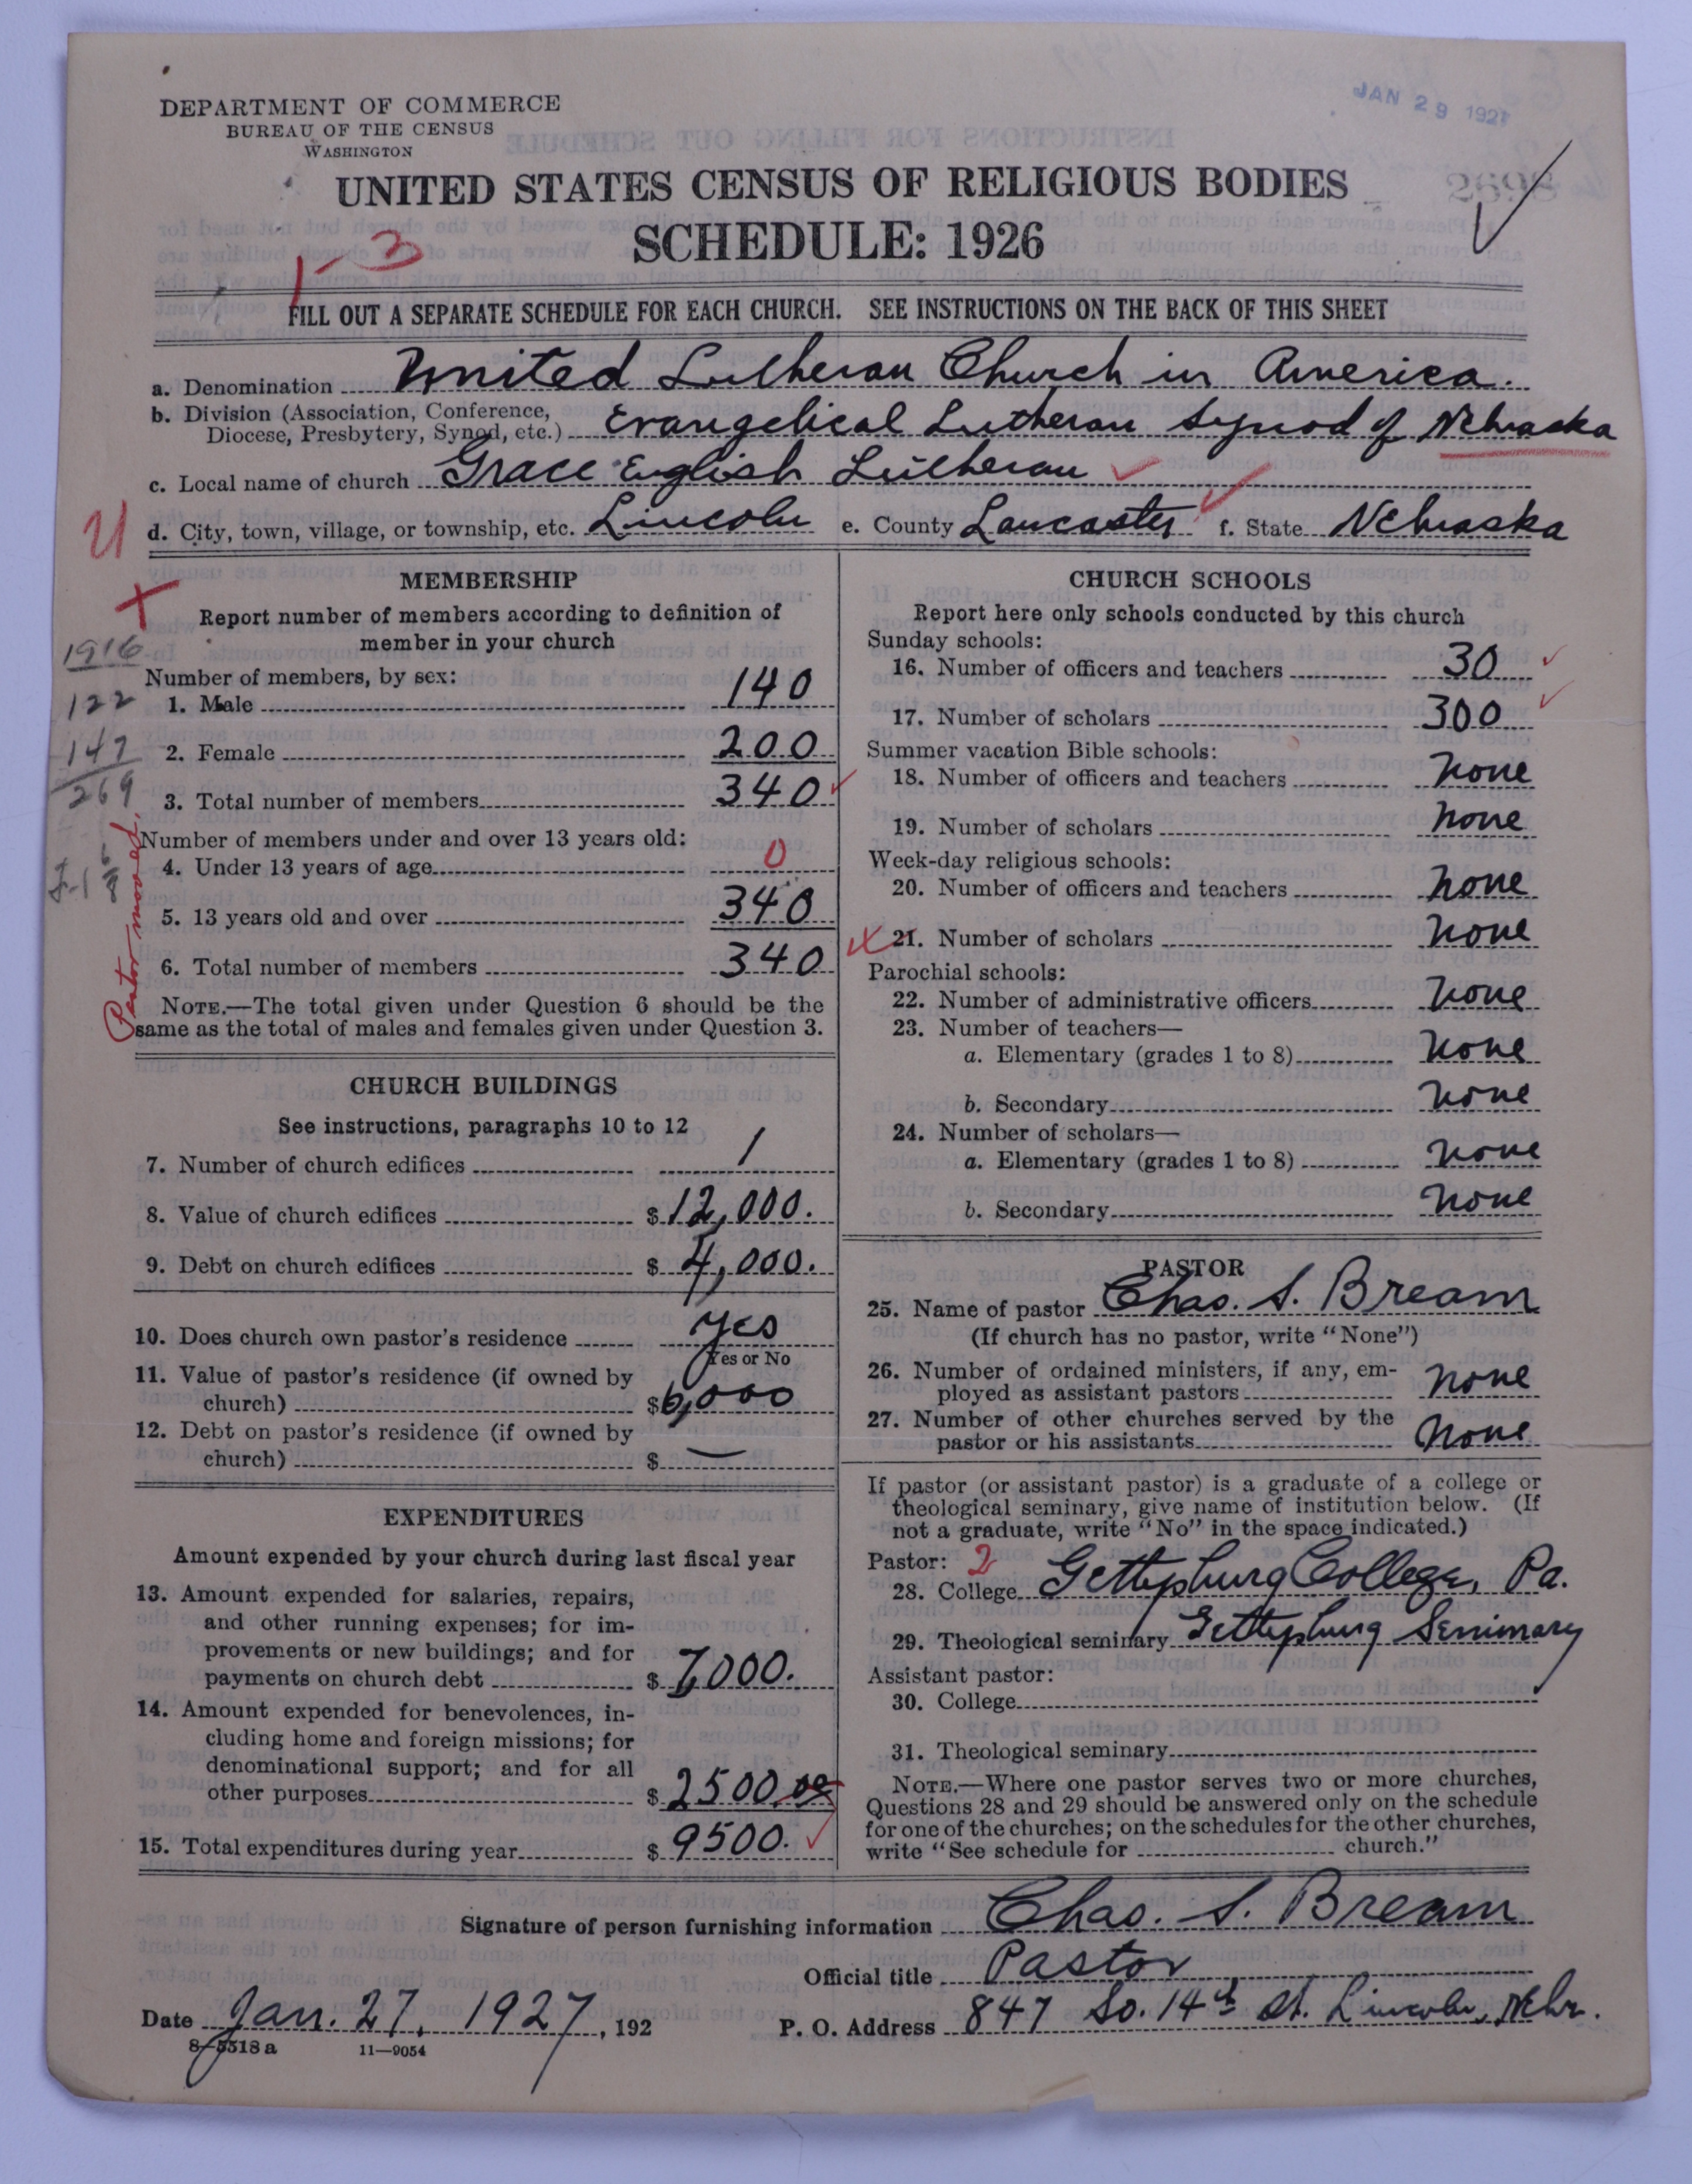 JAN 29 1927
DEPARTMENT OF COMMERCE
BUREAU OF THE CENSUS
WASHINGTON
UNITED STATES CENSUS OF RELIGIOUS BODIES
SCHEDULE: 1926
1-3
FILL OUT A SEPARATE SCHEDULE FOR EACH CHURCH. SEE INSTRUCTIONS ON THE BACK OF THIS SHEET
a. Denomination United Lutheran Church in America.
b. Division (Association, Conference,
Diocese, Presbytery, Synod, etc.) Evangelical Lutheran Synod of Nebraska
c. Local name of church Grace English Lutheran
d. City, town, village, or township, etc. Lincoln e. County Lancaster f. State Nebraska
MEMBERSHIP
Report number of members according to definition of
member in your church
1916
Number of members, by sex:
122 1. Male 140
147 2. Female 200
269 3. Total number of members 340
Number of members under and over 13 years old:
4. Under 13 years of age 0
5. 13 years old and over 340
6. Total number of members 340
Pastor moved.
NOTE.—The total given under Question 6 should be the
same as the total of males and females given under Question 3.
CHURCH BUILDINGS
See instructions, paragraphs 10 to 12
7. Number of church edifices 1
8. Value of church edifices $12,000.
9. Debt on church edifices $ 4,000.
10. Does church own pastor's residence yes
Yes or No
11. Value of pastor's residence (if owned by
church) $6,000
12. Debt on pastor's residence (if owned by
church) $ —
EXPENDITURES
Amount expended by your church during last fiscal year
13. Amount expended for salaries, repairs,
and other running expenses; for im-
provements or new buildings; and for
payments on church debt $ 7000.
14. Amount expended for benevolences, in-
cluding home and foreign missions; for
denominational support; and for all
other purposes $ 2500.00
15. Total expenditures during year $ 9500.
CHURCH SCHOOLS
Report here only schools conducted by this church
Sunday schools:
16. Number of officers and teachers 30
17. Number of scholars 300
Summer vacation Bible schools:
18. Number of officers and teachers none
19. Number of scholars none
Week-day religious schools:
20. Number of officers and teachers none
21. Number of scholars none
Parochial schools:
22. Number of administrative officers none
23. Number of teachers—
a. Elementary (grades 1 to 8) none
b. Secondary none
24. Number of scholars—
a. Elementary (grades 1 to 8) none
b. Secondary none
PASTOR
25. Name of pastor Chas. S. Bream
(If church has no pastor, write "None")
26. Number of ordained ministers, if any, em-
ployed as assistant pastors none
27. Number of other churches served by the
pastor or his assistants none
If pastor (or assistant pastor) is a graduate of a college or
theological seminary, give name of institution below. (If
not a graduate, write "No" in the space indicated.)
Pastor: 2
28. College Gettysburg College, Pa.
29. Theological seminary Gettysburg Seminary
Assistant pastor:
30. College
31. Theological seminary
NOTE.—Where one pastor serves two or more churches,
Questions 28 and 29 should be answered only on the schedule
for one of the churches; on the schedules for the other churches,
write "See schedule for church."
Signature of person furnishing information Chas. S. Bream
Official title Pastor
Date Jan. 27, 1927, 192 P. O. Address 847 So. 14th St. Lincoln, Nebr.
8—5518a 11—9054